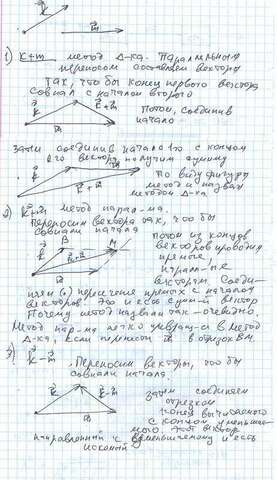 k m
1) k+m метод Δ-ка. Параллельным
переносом составляем векторы
так, что бы конец первого вектора
совпал с началом второго
k k+m Потом, соединив
начало
m
Затем соединив начало 1го с концом
его вектора получим сумму
k m По виду фигуры
k+m метод и назван
методом Δ-ка
2) k+m метод парал-ма.
Переносим вектора так, что бы
совпали начала
B M Потом из концов
k k+m векторов проводим
прямые,
m парал-ные
векторам. Соеди-
нием (·) пересечения прямых с началом
векторов. Это и есть един-й вектор
Почему метод назвали так - очевидно.
Метод пар-ма легко превращ-ся в метод
Δ-ка, если перенести m в отрезок BM.
3) k-m
Переносим векторы, что бы
совпали начала
k k-m Затем соединяем
отрезком
конец вычитаемого
m с концом уменьшае-
мого. Этот вектор
направленный к уменьшаемому и есть
искомый